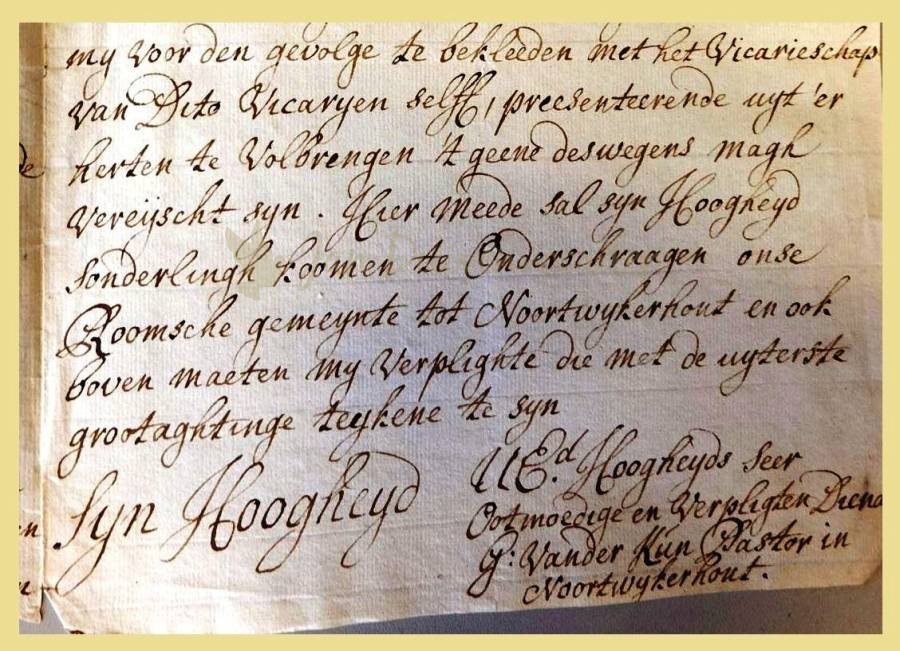 my voor den gevolge te bekleeden met het Vicarieschap
van Dito Vicaryen selff, presenteerende uyt 'er
herten te Volbrengen 't geene deswegens magh
Vereijscht syn. Hier meede sal syn Hoogheyd
sonderlingh koomen te Onderschraagen onse
Roomsche gemeynte tot Noortwykerhout en ook
boven maeten my Verplighte die met de uyterste
grootaghtinge teykene te syn
UEd. Hoogheyds seer
Syn Hoogheyd
Ootmoedige en Verpligten Diena
G: Vander Kun Pastor in
Noortwykerhout.